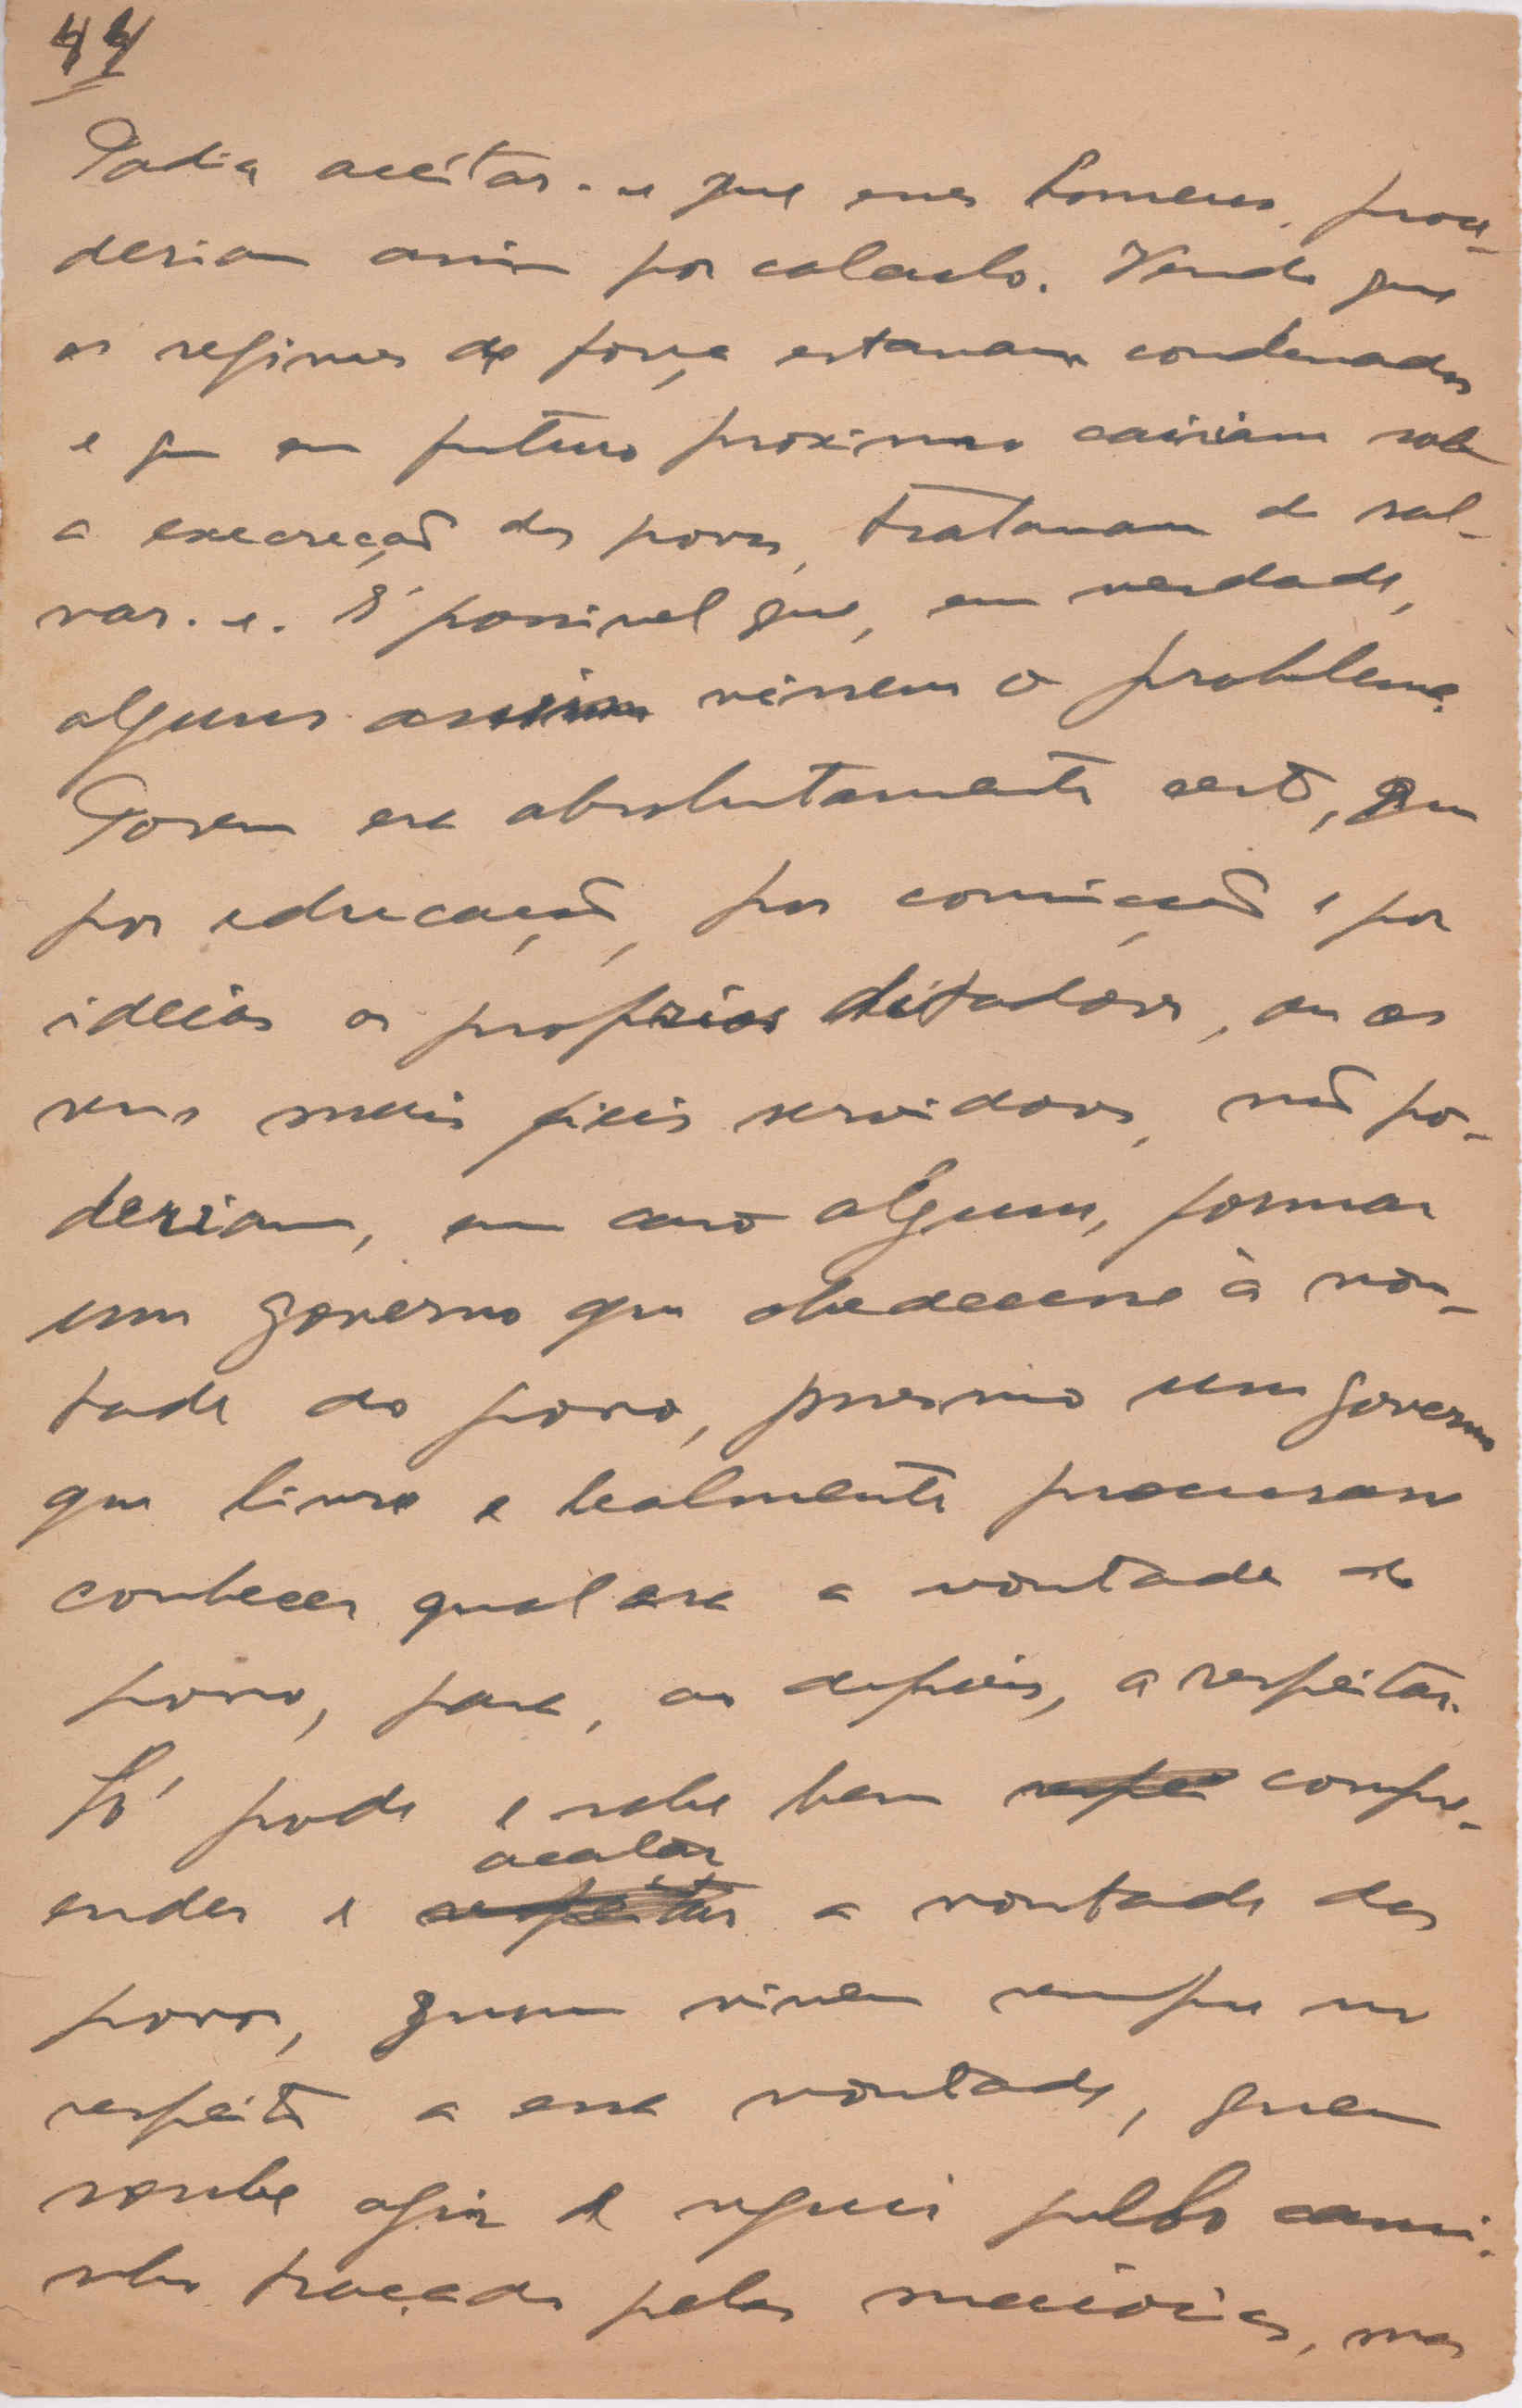 44
Podia aceitar-se que esses homens, proce-
deriam assim por calculo. Vendo que
os regimes de força estavam condenados
e que em futuro proximo cairiam sob
a execreção dos povos, tratavam de sal-
var-se. É possivel que, em verdade,
alguns assim vissem o problema.
Porem era absolutamente certo, que
por educação, por convicção e por
ideias os proprios ditadores, ou os
seus mais fieis servidores, não po-
deriam, em caso algum, formar
um governo que obedecesse à von-
tade do povo, mesmo um governo
que livre e lealmente procurasse
conhecer qual era a vontade do
povo, para, ao depois, a respeitar.
Só pode e sabe bem compre-
acatar
ender e respeitar a vontade dos
povos, quem viveu sempre no
respeito a essa vontade, quem
soube agir e seguir pelo cami-
nho traçado pelas maiorias, mas